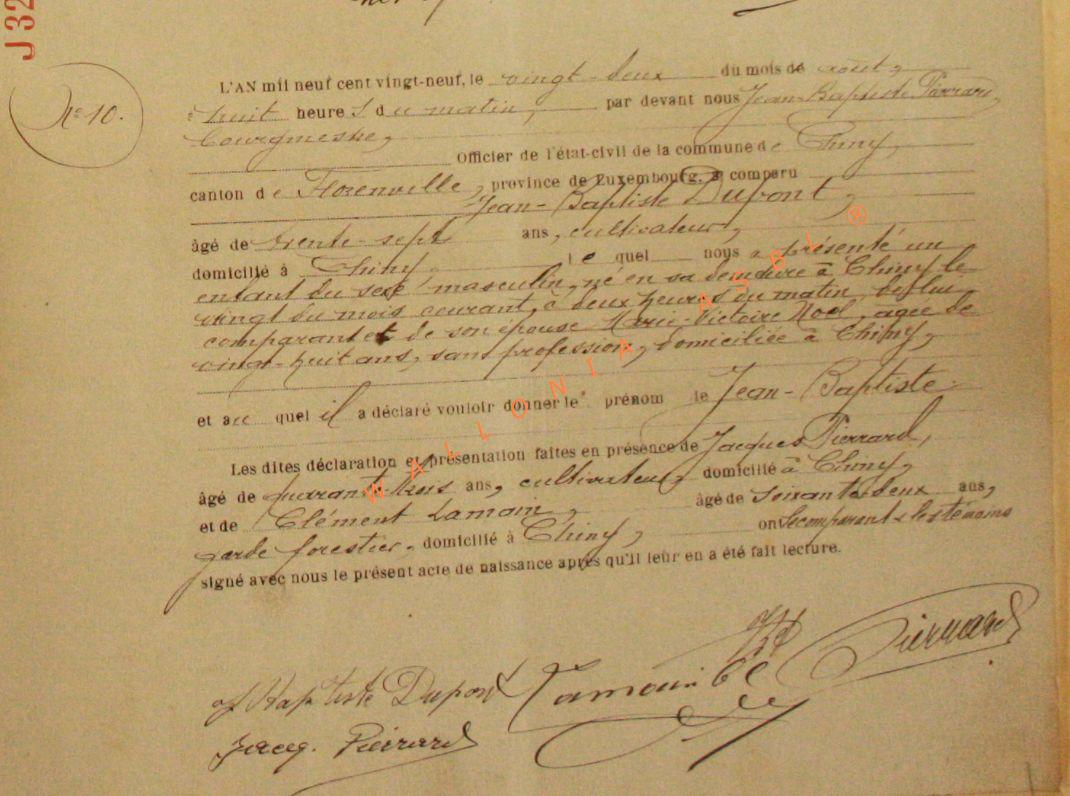 J 32
N° 10.
L'AN mil neuf cent vingt-neuf, le vingt-deux du mois de août,
à huit heures du matin, par devant nous Jean-Baptiste Pierrard,
bourgmestre,
Officier de l'état-civil de la commune de Chiny,
canton de Florenville, province de Luxembourg, a comparu
Jean-Baptiste Dupont,
âgé de trente-sept ans, cultivateur,
domicilié à Chiny, lequel nous a présenté un
enfant du sexe masculin, né en sa demeure à Chiny le
vingt du mois courant, à deux heures du matin, de lui
comparant et de son épouse Marie-Victoire Noël, agée de
vingt-huit ans, sans profession, domiciliée à Chiny,
et auquel il a déclaré vouloir donner le prénom le Jean-Baptiste
Les dites déclaration et présentation faites en présence de Jacques Pierrard,
âgé de quarante-trois ans, cultivateur, domicilié à Chiny,
et de Clément Lamoin, âgé de soixante-deux ans,
garde forestier, domicilié à Chiny, ont le comparant & les témoins
signé avec nous le présent acte de naissance après qu'il leur en a été fait lecture.
WALLONIA ASBL ®
J Baptiste Dupont Lamouin Cl JB Pierrard
Jacq. Pierrard